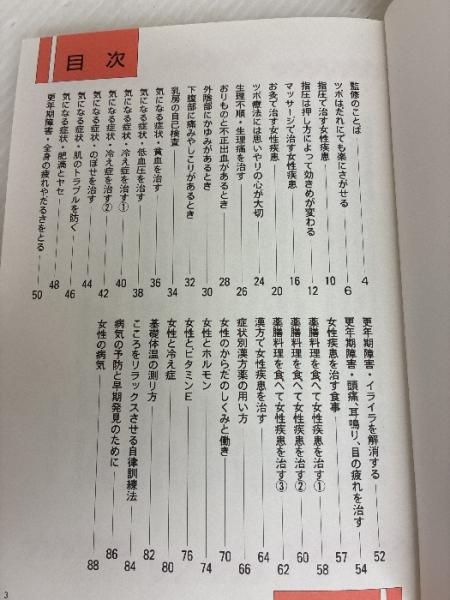 目次
監修のことば 4
ツボはだれにでも楽にさがせる 6
指圧で治す女性疾患 10
指圧は押し方によって効きめが変わる 12
マッサージで治す女性疾患 16
お灸で治す女性疾患 20
ツボ療法には思いやりの心が大切 24
生理不順・生理痛を治す 26
おりものと不正出血があるとき 28
外陰部にかゆみがあるとき 30
下腹部に痛みやしこりがあるとき 32
乳房の自己検査 34
気になる症状・貧血を治す 36
気になる症状・低血圧を治す 38
気になる症状・冷え症を治す① 40
気になる症状・冷え症を治す② 42
気になる症状・のぼせを治す 44
気になる症状・肌のトラブルを防ぐ 46
気になる症状・肥満とヤセ 48
更年期障害・全身の疲れやだるさをとる 50
更年期障害・イライラを解消する 52
更年期障害・頭痛、耳鳴り、目の疲れを治す 54
女性疾患を治す食事 57
薬膳料理を食べて女性疾患を治す① 58
薬膳料理を食べて女性疾患を治す② 60
薬膳料理を食べて女性疾患を治す③ 62
漢方で女性疾患を治す 64
症状別漢方薬の用い方 66
女性のからだのしくみと働き 70
女性とホルモン 74
女性とビタミンE 76
女性と冷え症 80
基礎体温の測り方 82
こころをリラックスさせる自律訓練法 84
病気の予防と早期発見のために 86
女性の病気 88
3